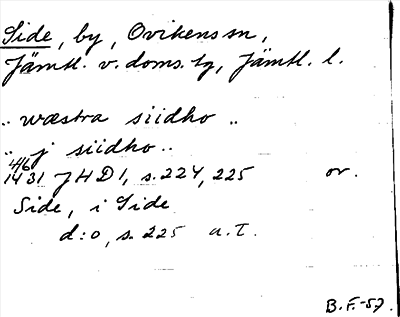 Side, by, Ovikens sn,
Jämtl. v. doms. tg, Jämtl. l.
.. wæstra siidho ..
.. j siidho ..
4/6
1431 JHD1, s. 224, 225 or.
Side, i Side
d:o, s. 225 a.T.
B.F.-57.